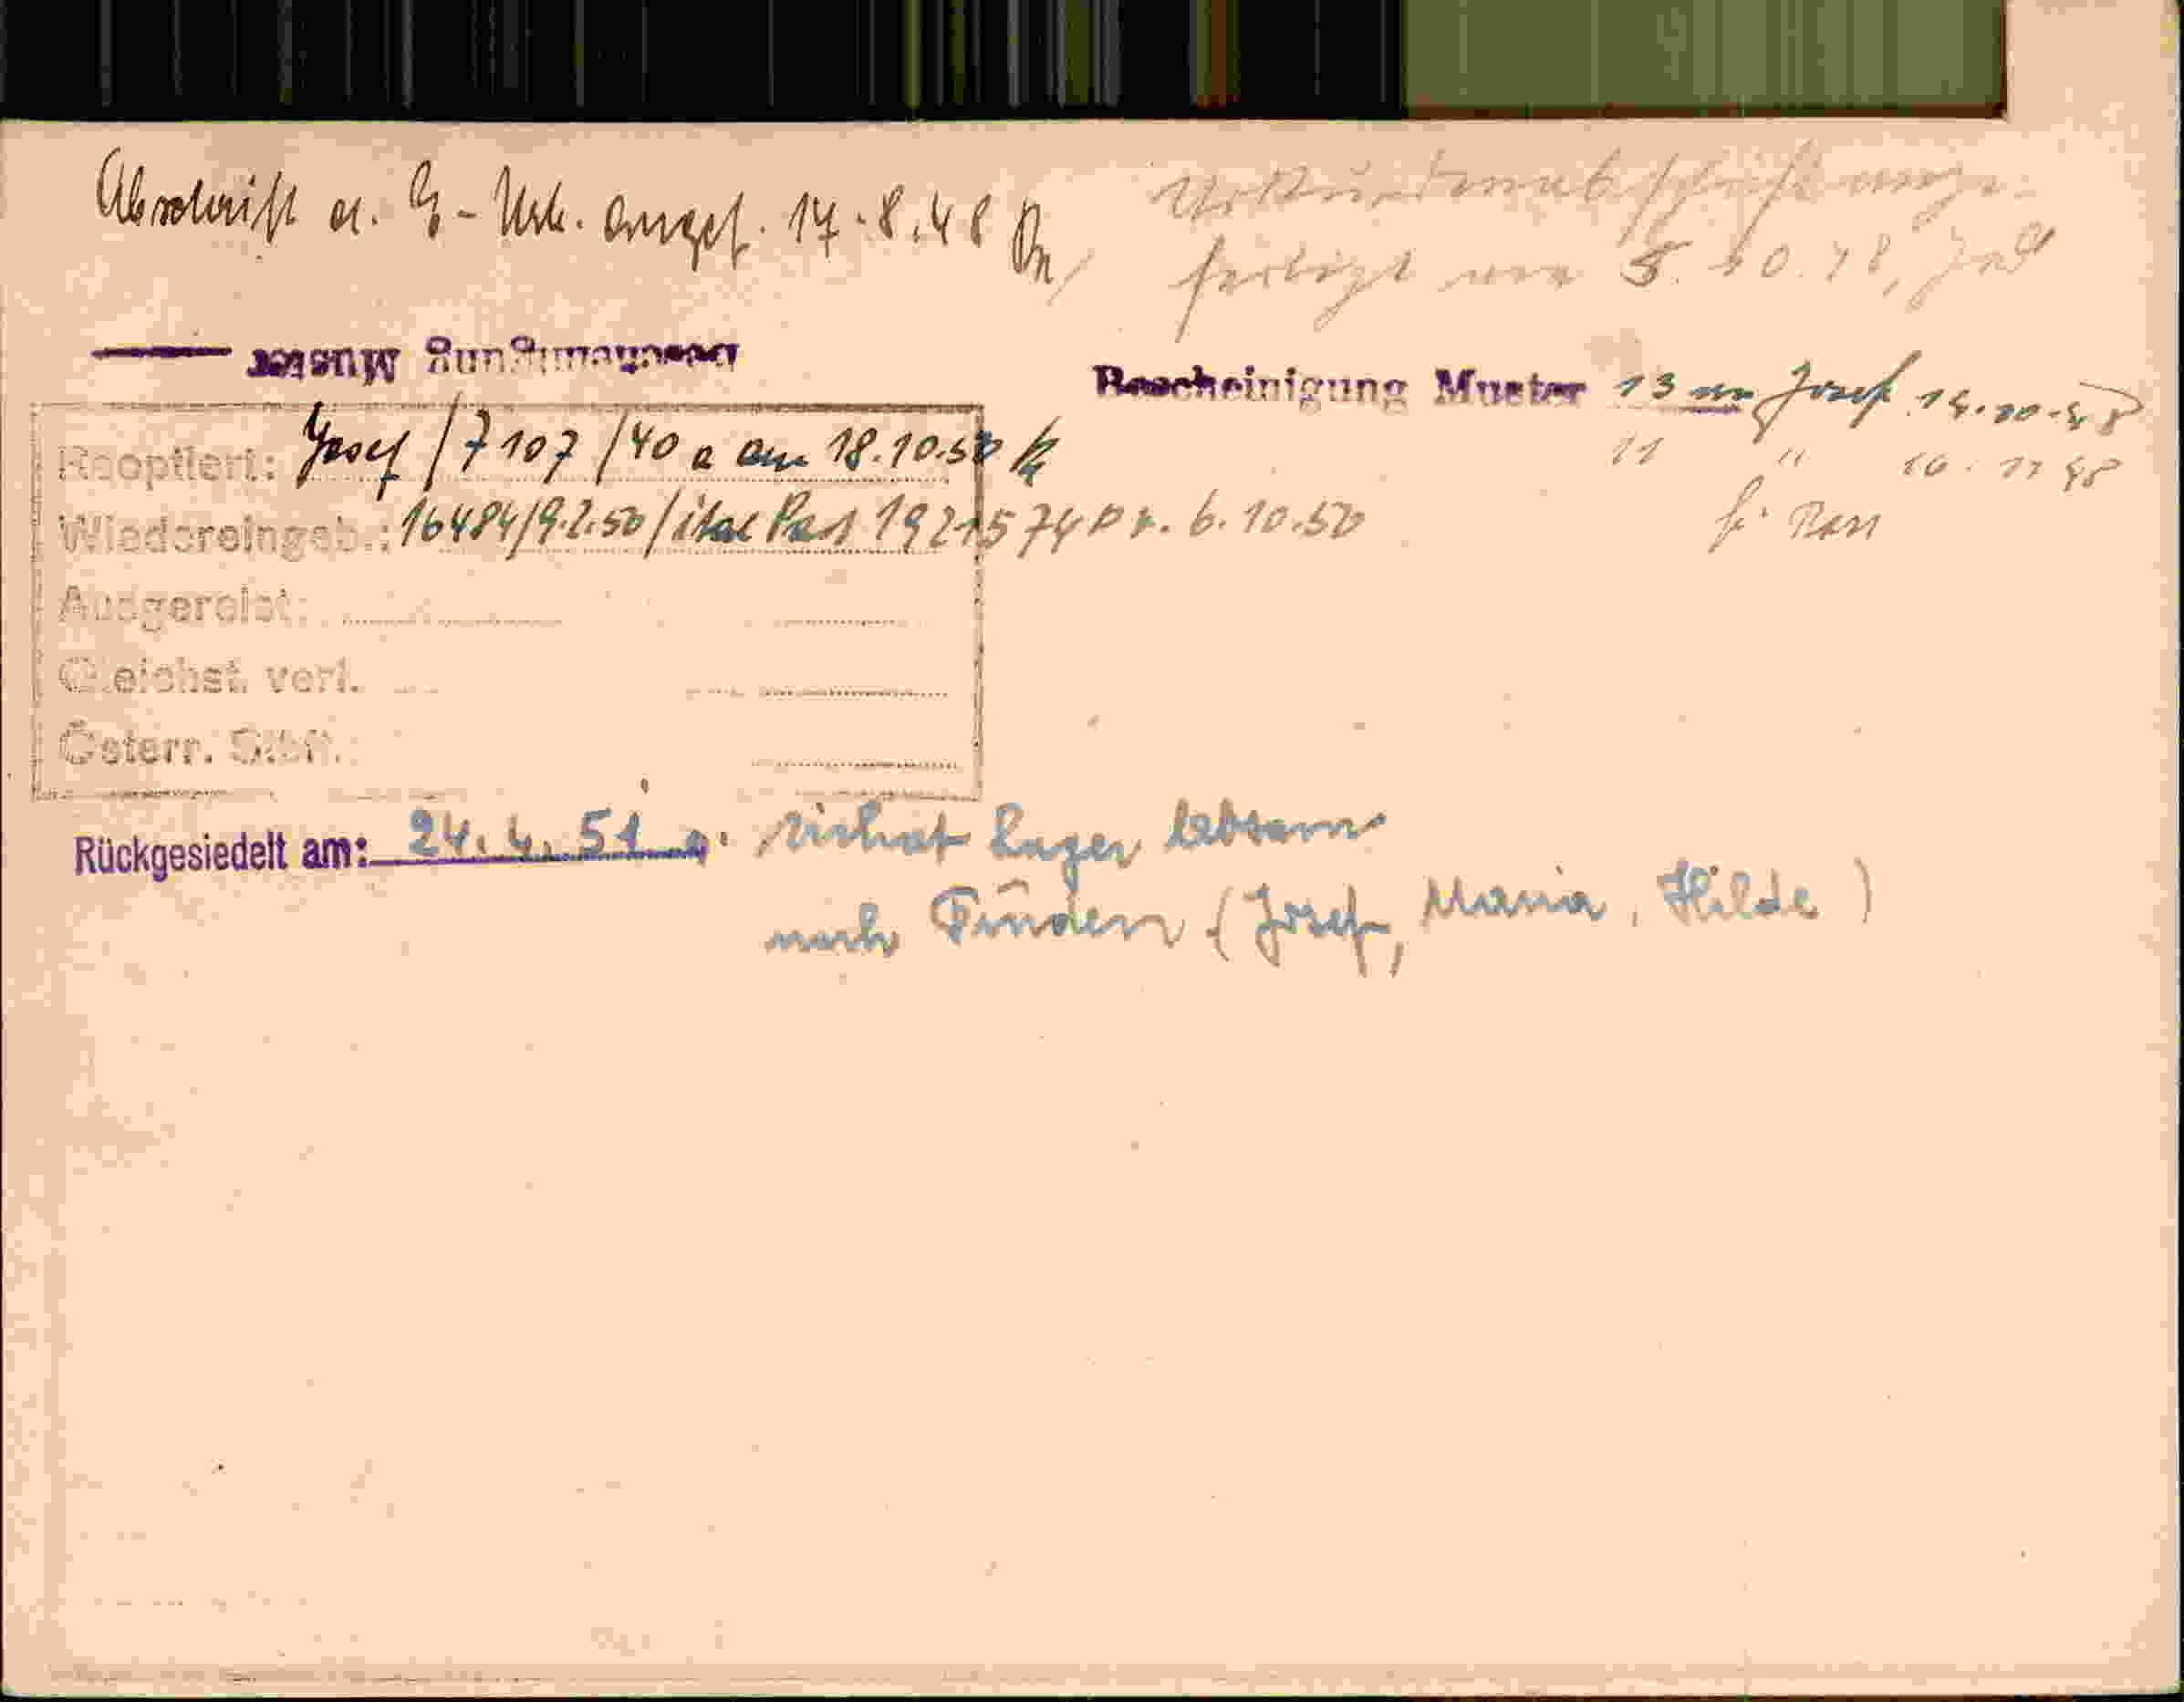 Abschrift a. E-Urk. angef. 17.8.48
Urkundenabschrift ange-
fertigt am 5.10.48,
Bescheinigung Muster
Bescheinigung Muster 13 an Josef 14.10.48
11 " 16.11.48
f. Pass
Reoptiert: Josef /7107/40 a am 18.10.50
Wiedereingeb.: 16484/9.2.50/ital Pass 1921574 P v. 6.10.50
Ausgereist:
Gleichst. verl.
Österr. Stbft.
Rückgesiedelt am: 24.4.51 Lager
nach (Josef, Maria, Hilde)